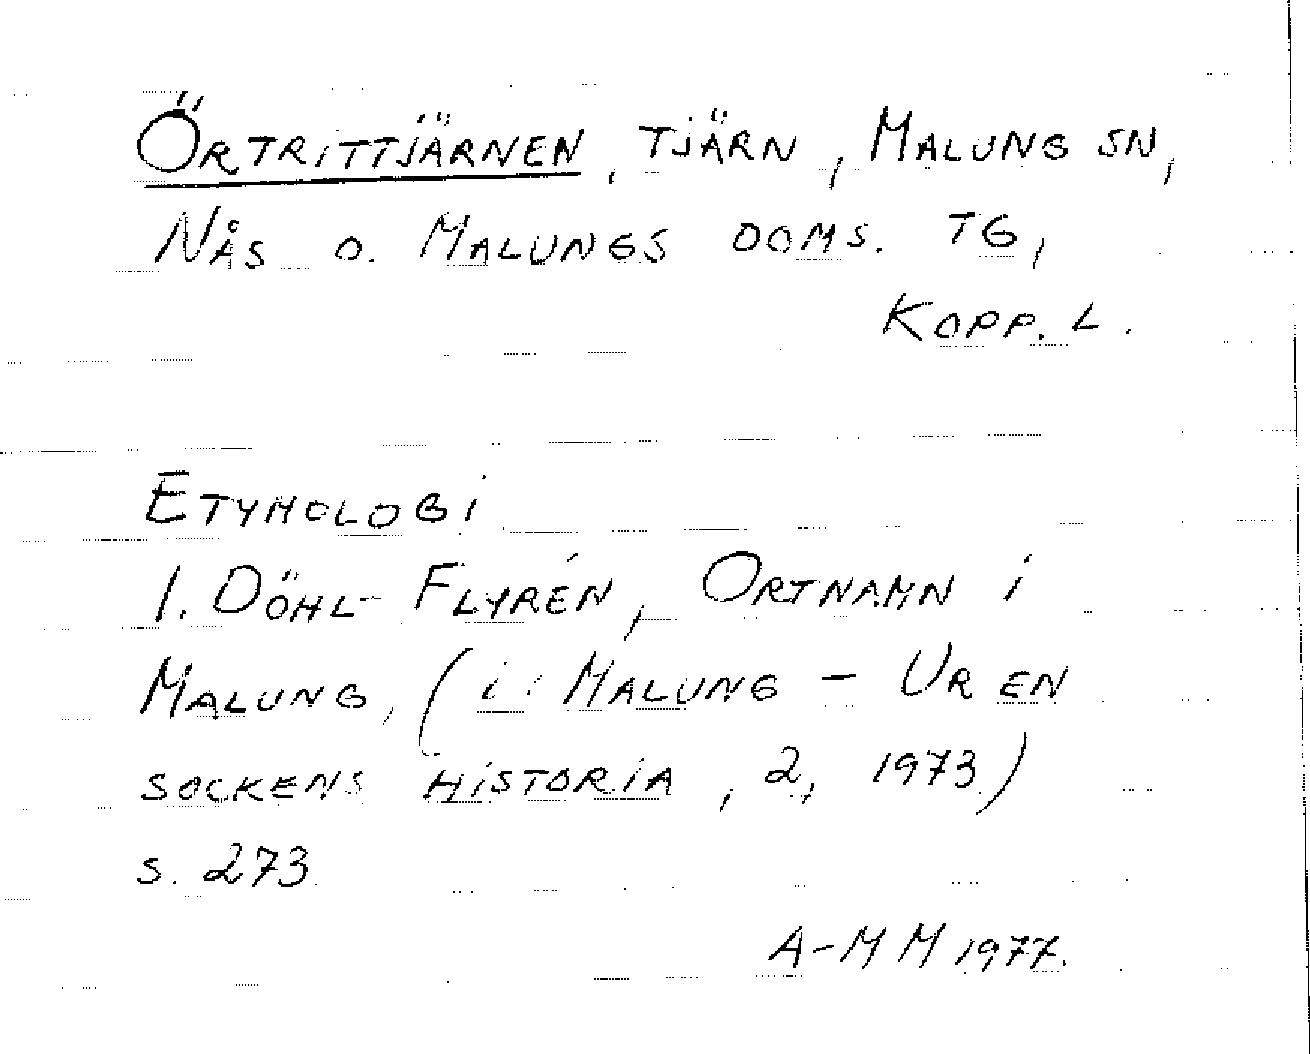 ÖRTRITTJÄRNEN, TJÄRN, MALUNG SN,
NÅS O. MALUNGS DOMS. TG,
KOPP. L.
ETYMOLOGI
I. DÖHL-FLYRÉN, ORTNAMN I
MALUNG, (I: MALUNG - UR EN
SOCKENS HISTORIA, 2, 1973)
S. 273
A-MM 1977.